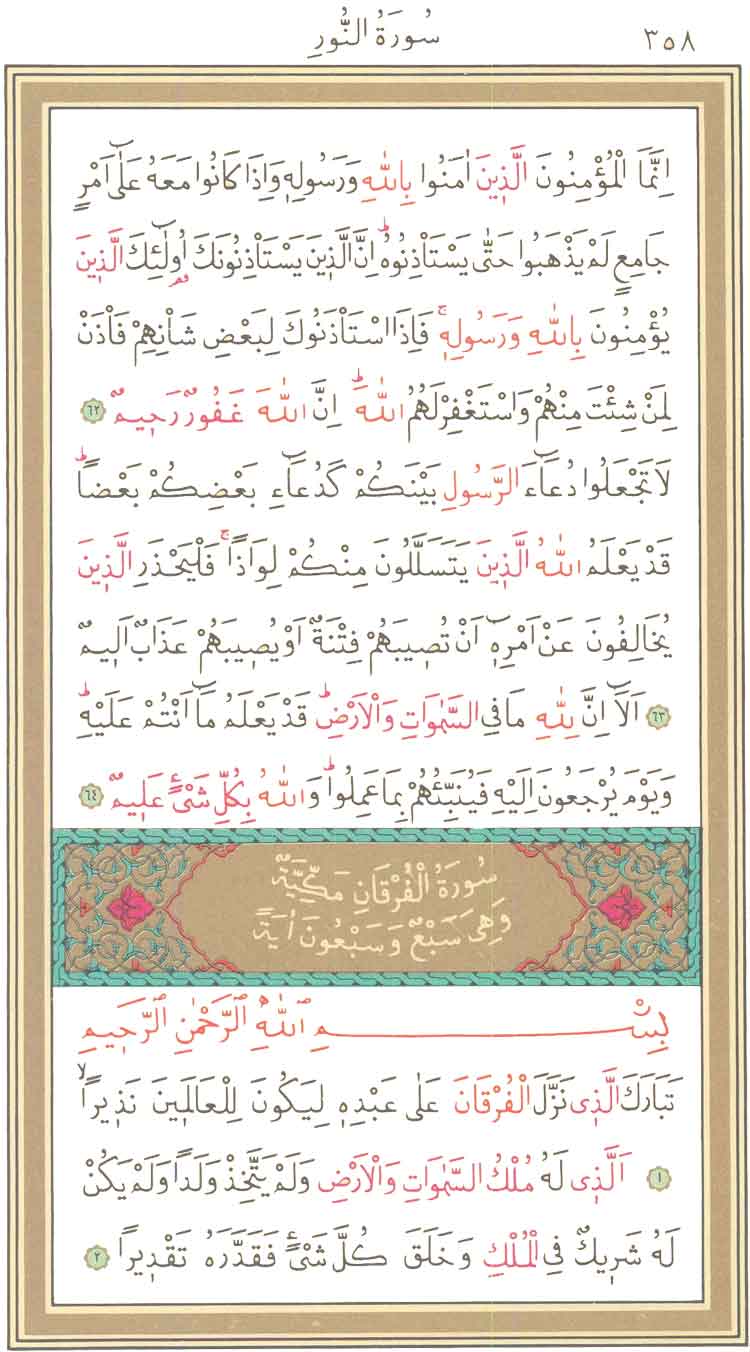 سُورَةُ النُّورِ ٣٥٨
اِنَّمَا الْمُؤْمِنُونَ الَّذ۪ينَ اٰمَنُوا بِاللّٰهِ وَرَسُولِه۪ وَاِذَا كَانُوا مَعَهُ عَلٰٓى اَمْرٍ
جَامِعٍ لَمْ يَذْهَبُوا حَتّٰى يَسْتَأْذِنُوهُۜ اِنَّ الَّذ۪ينَ يَسْتَأْذِنُونَكَ اُو۬لٰٓئِكَ الَّذ۪ينَ
يُؤْمِنُونَ بِاللّٰهِ وَرَسُولِه۪ۚ فَاِذَا اسْتَأْذَنُوكَ لِبَعْضِ شَأْنِهِمْ فَأْذَنْ
لِمَنْ شِئْتَ مِنْهُمْ وَاسْتَغْفِرْ لَهُمُ اللّٰهَۜ اِنَّ اللّٰهَ غَفُورٌ رَح۪يمٌ ٦٢
لَا تَجْعَلُوا دُعَٓاءَ الرَّسُولِ بَيْنَكُمْ كَدُعَٓاءِ بَعْضِكُمْ بَعْضاًۜ
قَدْ يَعْلَمُ اللّٰهُ الَّذ۪ينَ يَتَسَلَّلُونَ مِنْكُمْ لِوَاذاًۚ فَلْيَحْذَرِ الَّذ۪ينَ
يُخَالِفُونَ عَنْ اَمْرِه۪ٓ اَنْ تُص۪يبَهُمْ فِتْنَةٌ اَوْ يُص۪يبَهُمْ عَذَابٌ اَل۪يمٌ
٦٣ اَلَٓا اِنَّ لِلّٰهِ مَا فِي السَّمٰوَاتِ وَالْاَرْضِۜ قَدْ يَعْلَمُ مَٓا اَنْتُمْ عَلَيْهِۜ
وَيَوْمَ يُرْجَعُونَ اِلَيْهِ فَيُنَبِّئُهُمْ بِمَا عَمِلُواۜ وَاللّٰهُ بِكُلِّ شَيْءٍ عَل۪يمٌ ٦٤
سُورَةُ الْفُرْقَانِ مَكِّيَّةٌ
وَهِيَ سَبْعٌ وَسَبْعُونَ اٰيَةً
بِسْمِ اللّٰهِ الرَّحْمٰنِ الرَّح۪يمِ
تَبَارَكَ الَّذ۪ي نَزَّلَ الْفُرْقَانَ عَلٰى عَبْدِه۪ لِيَكُونَ لِلْعَالَم۪ينَ نَذ۪يراًۙ
١ اَلَّذ۪ي لَهُ مُلْكُ السَّمٰوَاتِ وَالْاَرْضِ وَلَمْ يَتَّخِذْ وَلَداً وَلَمْ يَكُنْ
لَهُ شَر۪يكٌ فِي الْمُلْكِ وَخَلَقَ كُلَّ شَيْءٍ فَقَدَّرَهُ تَقْد۪يراً ٢